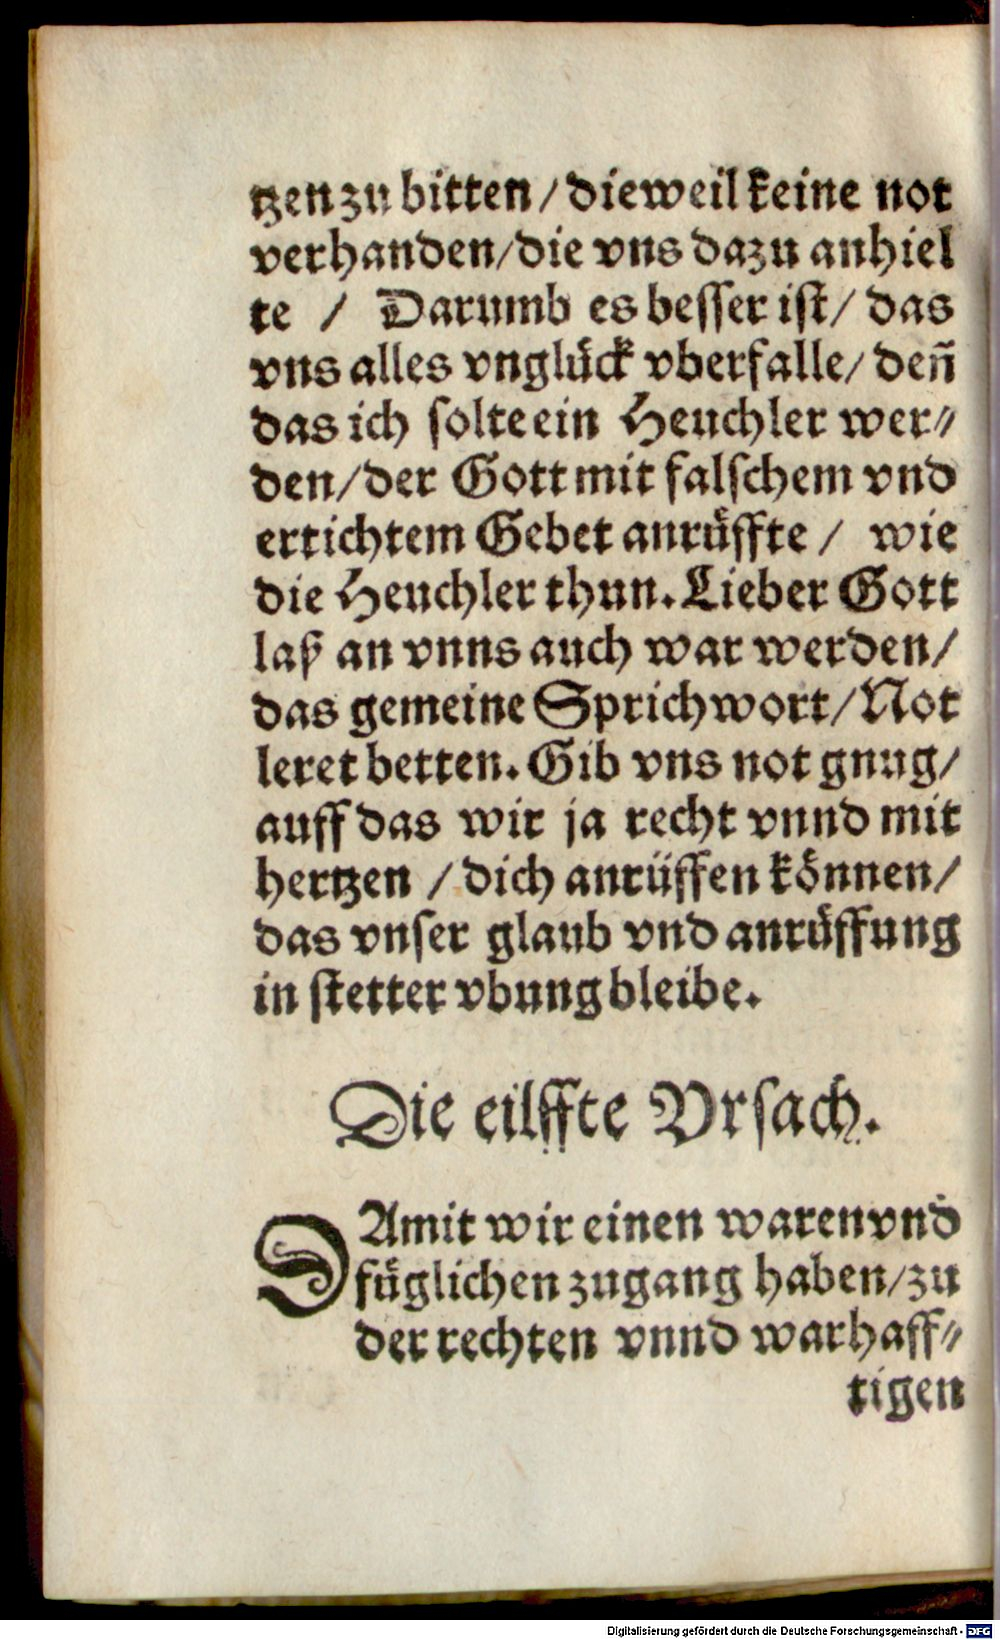 tzen zu bitten / dieweil keine not
verhanden / die vns dazu anhiel
te / Darumb es besser ist / das
vns alles vnglück vberfalle / den̄
das ich solte ein Heuchler wer⸗
den / der Gott mit falschem vnd
ertichtem Gebet anrůffte / wie
die Heuchler thun. Lieber Gott
laß an vnns auch war werden /
das gemeine Sprichwort / Not
leret betten. Gib vns not gnug /
auff das wir ja recht vnnd mit
hertzen / dich anrüffen können /
das vnser glaub vnd anrůffung
in stetter vbung bleibe.
Die eilffte Vrsach.
DAmit wir einen waren vnd
füglichen zugang haben / zu
der rechten vnnd warhaff⸗
tigen
Digitalisierung gefördert durch die Deutsche Forschungsgemeinschaft - DFG